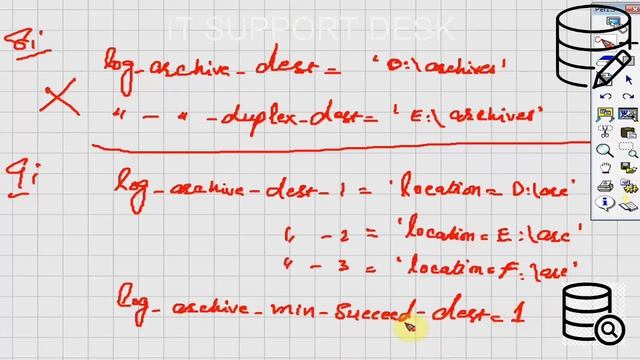 IT SUPPORT DESK
8i
log_archive_dest = 'D:\archives'
" - " - duplex_dest = 'E:\archives'
9i
log_archive-dest-1 = 'location = D:\arc'
" - 2 = 'location = E:\arc'
" - 3 = 'location = F:\arc'
log_archive_min-Succeed-dest = 1